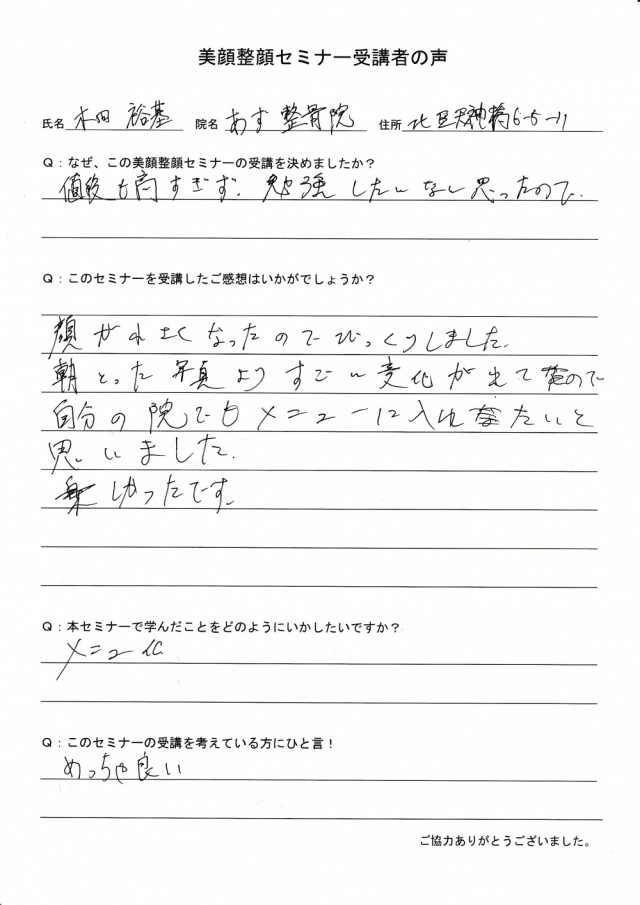 美顔整顔セミナー受講者の声
氏名 本田 裕基 院名 あす整骨院 住所 北区天神橋6-5-11
Q：なぜ、この美顔整顔セミナーの受講を決めましたか？
値段も高すぎず、勉強したいなと思ったので、
Q：このセミナーを受講したご感想はいかがでしょうか？
顔が小さくなったのでびっくりしました。
朝とった写真よりすごい変化が出て ので
自分の院でもメニューに入れ たいと
思いました。
楽しかったです。
Q：本セミナーで学んだことをどのようにいかしたいですか？
メニュー化
Q：このセミナーの受講を考えている方にひと言！
めっちゃ良い
ご協力ありがとうございました。